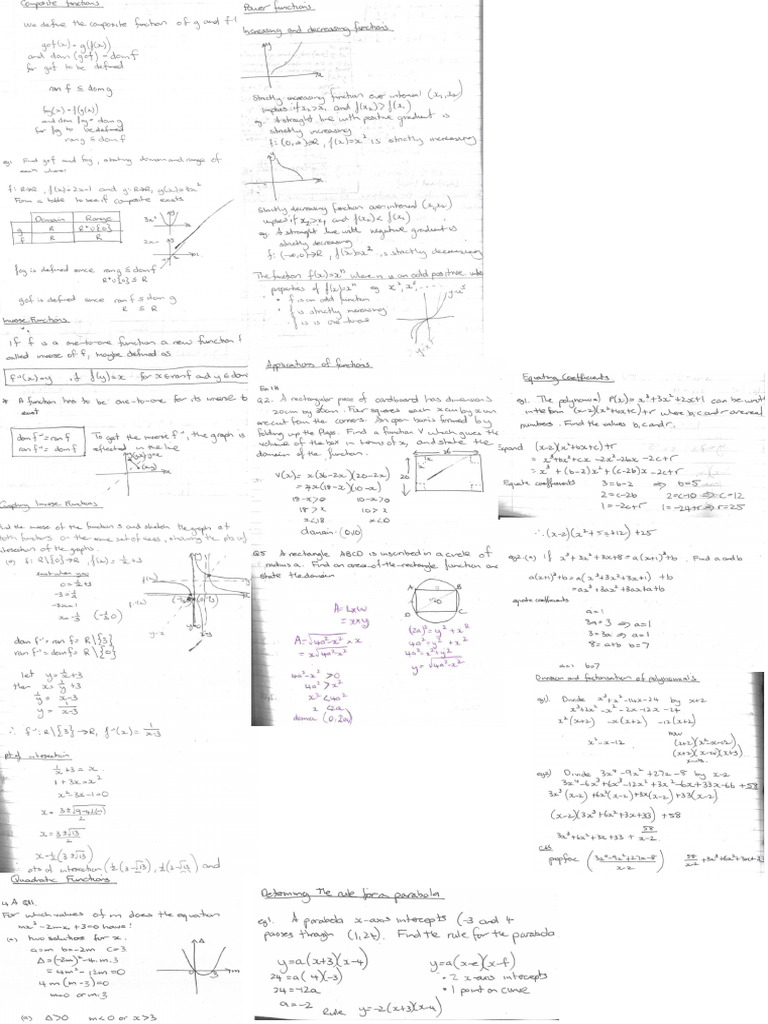 Composite functions
We define the composite function of g and f
gof(x) = g(f(x))
and dom (gof) = dom f
for gof to be defined
ran f ⊆ dom g
fog(x) = f(g(x))
and dom fog = dom g
for fog to be defined
ran g ⊆ dom f
eg1 Find gof and fog, stating domain and range of each where
f: R→R, f(x)=2x-1 and g: R→R, g(x)=3x²
Form a table to see if composite exists
Domain Range
g R R⁺∪{0}
f R R
fog is defined since ran g ⊆ dom f
R⁺∪{0} ⊆ R
gof is defined since ran f ⊆ dom g
R ⊆ R
Inverse Functions
If f is a one-to-one function a new function
called inverse of f, maybe defined as
f⁻¹(x)=y if f(y)=x for x∈ran f and y∈dom
* A function has to be one-to-one for its inverse to
exist
dom f⁻¹ = ran f
ran f⁻¹ = dom f
To get the inverse f⁻¹, the graph is
reflected in the line
Graphing Inverse Functions
Find the inverse of the function s and sketch the graph of
both functions on the same set of axes, showing the pts of
intersection of the graphs.
(a) f: R\{0}→R, f(x) = 1/x+3
0 = 1/x+3
-3 = 1/x
-3x=1
x=-1/3 (-1/3,0)
dom f⁻¹ = ran f = R\{3}
ran f⁻¹ = dom f = R\{0}
let y = 1/x+3
then x = 1/y+3
1/y = x-3
y = 1/x-3
∴ f⁻¹: R\{3}→R, f⁻¹(x) = 1/x-3
pt of intersection
1/x+3 = x
1+3x=x²
x²-3x-1=0
x = 3±√13/2
x=½(3±√13)
Quadratic Functions
4A Q11.
For which values of m does the equation
mx²-2mx+3=0 have:
(a) two solutions for x.
a=m b=-2m c=3
Δ=(-2m)²-4.m.3
=4m²-12m=0
4m(m-3)=0
m=0 or m=3
(a) Δ>0 m<0 or x>3
Power functions
Increasing and decreasing functions
Strictly increasing function over interval (x₁,x₂)
implies if x₂>x₁ and f(x₂)>f(x₁)
eg. A straight line with positive gradient is
strictly increasing
f: (0,∞)→R, f(x)=x² is strictly increasing
Strictly decreasing function over interval (x₁,x₂)
implies if x₂>x₁ and f(x₂)<f(x₁)
eg. A straight line with negative gradient is
strictly decreasing
f: (-∞,0)→R, f(x)=x², is strictly decreasing
The function f(x)=xⁿ where n is an odd positive
properties of f(x)=xⁿ eg x³, x⁵, ....
• f is an odd function
• f is strictly increasing
• f is one-to-one
Applications of functions
Ex 1H
Q2. A rectangular piece of cardboard has dimensions
20cm by 36cm. Four squares each x cm by x cm
are cut from the corners. An open box is formed by
folding up the flaps. Find a function V which gives the
volume of the box in terms of x, and state the
domain of the function.
V(x) = x(36-2x)(20-2x)
= 4x(18-x)(10-x)
18-x>0 10-x>0
18>x 10>x
x<18 x<10
domain: (0,10)
Q5 A rectangle ABCD is inscribed in a circle of
radius a. Find an area-of-the-rectangle function and
state the domain
A = L×W
= x×y
A = √4a²-x² × x
= x√4a²-x²
4a²-x²>0
4a²>x²
x²<4a²
x<2a
domain (0,2a)
(2a)²=y²+x²
4a²=y²+x²
y=√4a²-x²
Determining the rule for a parabola
eg1. A parabola x-axis intercepts (-3 and 4
passes through (1,24). Find the rule for the parabola
y=a(x+3)(x-4)
24=a(4)(-3)
24=-12a
a=-2
Rule y=-2(x+3)(x-4)
y=a(x-e)(x-f)
• 2 x-axis intercepts
• 1 point on curve
Equating Coefficients
eg1. The polynomial P(x)=x³+3x²+2x+1 can be written
in the form (x-2)(x²+bx+c)+r where b,c and r are real
numbers. Find the values b,c and r.
Expand (x-2)(x²+bx+c)+r
= x³+bx²+cx-2x²-2bx-2c+r
= x³+(b-2)x²+(c-2b)x-2c+r
Equate coefficients 3=b-2 ⇒ b=5
2=c-2b 2=c-10 ⇒ c=12
1=-2c+r 1=-24+r ⇒ r=25
∴ (x-2)(x²+5x+12)+25
eg2.(a) If x³+3x²+3x+8=a(x+1)³+b Find a and b
a(x+1)³+b=a(x³+3x²+3x+1)+b
=ax³+3ax²+3ax+a+b
equate coefficients
a=1
3a=3 ⇒ a=1
3=3a ⇒ a=1
8=a+b b=7
a=1 b=7
Division and factorisation of polynomials
eg1. Divide x³+x²-14x-24 by x+2
x³+2x²-x²-2x-12x-24
x²(x+2) -x(x+2) -12(x+2)
x²-x-12
(x+2)(x²-x-12)
(x+2)(x-4)(x+3)
eg2) Divide 3x⁴-9x²+27x-8 by x-2
3x³(x-2)+6x²(x-2)+3x(x-2)+33(x-2)
(x-2)(3x³+6x²+3x+33)+58
3x³+6x²+3x+33+ 58/x-2
CAS
propfrac (3x⁴-9x²+27x-8/x-2)